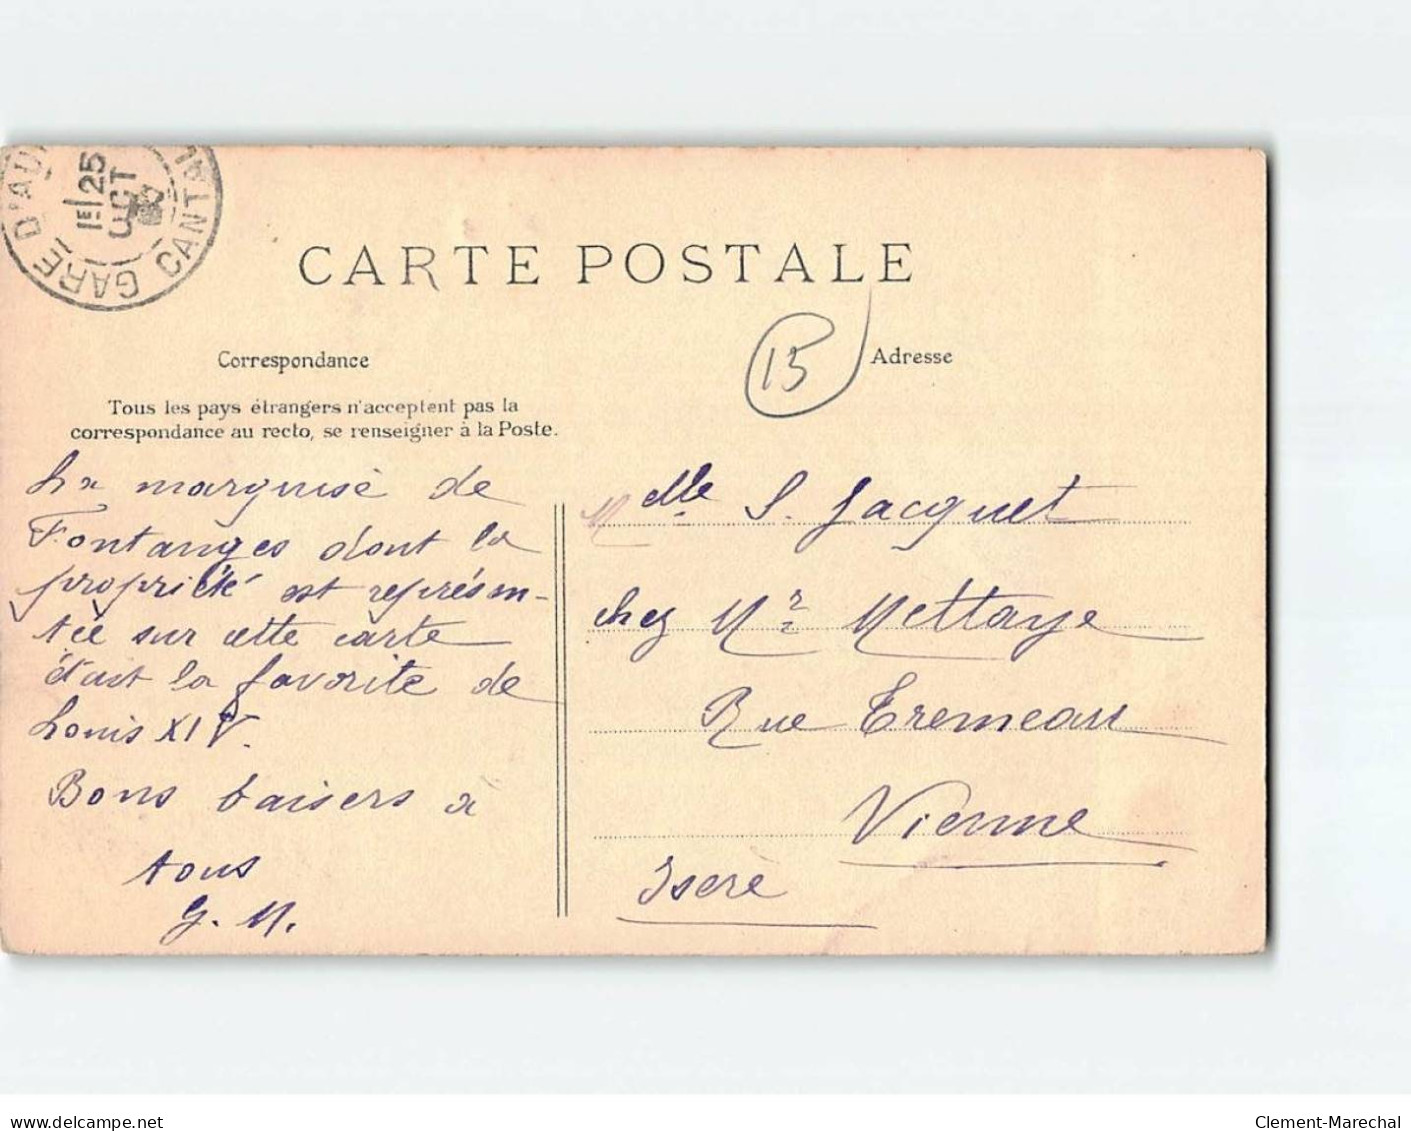 GARE D'AU
CANTAL
1E/25
OCT
CARTE POSTALE
15
Correspondance
Adresse
Tous les pays étrangers n'acceptent pas la
correspondance au recto, se renseigner à la Poste.
La marquise de
Fontanges dont la
propriété est représen-
tée sur cette carte
était la favorite de
Louis XIV.
Bons baisers à
tous
G. M.
Melle S. Jacquet
chez Mr Mettaye
Rue Tremeau
Vienne
Isère
www.delcampe.net
Clement-Marechal